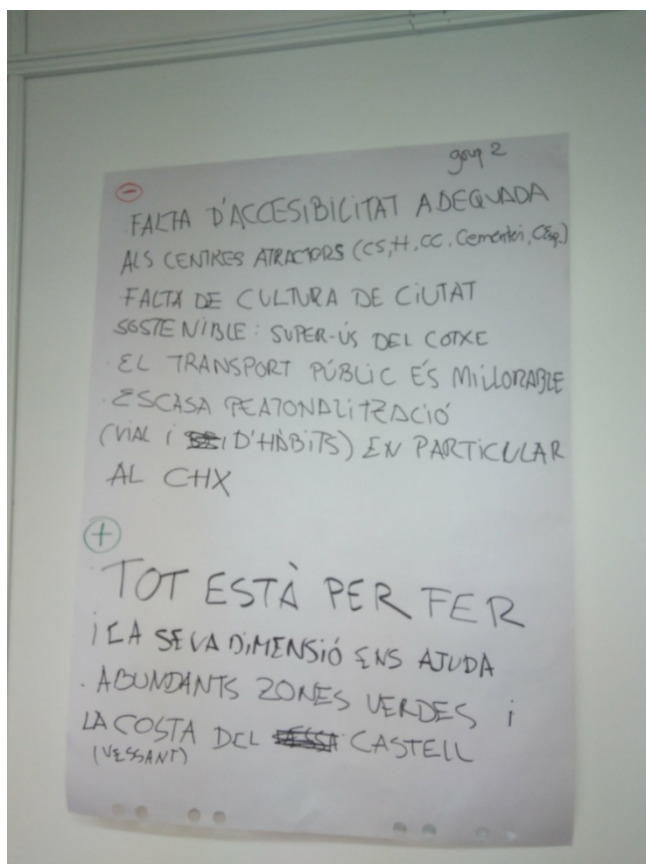 grup 2
-
· FALTA D'ACCESIBILITAT ADEQUADA
ALS CENTRES ATRACTORS (CS, H, CC, Cementeri, CEsp.)
· FALTA DE CULTURA DE CIUTAT
SOSTENIBLE: SUPER-ÚS DEL COTXE
· EL TRANSPORT PÚBLIC ÉS MILLORABLE
· ESCASA PEATONALITZACIÓ
(VIAL I D'HÀBITS) EN PARTICULAR
AL CHX
+
· TOT ESTÀ PER FER
i LA SEVA DIMENSIÓ ENS AJUDA
· ABUNDANTS ZONES VERDES i
LA COSTA DEL CASTELL
(VESSANT)